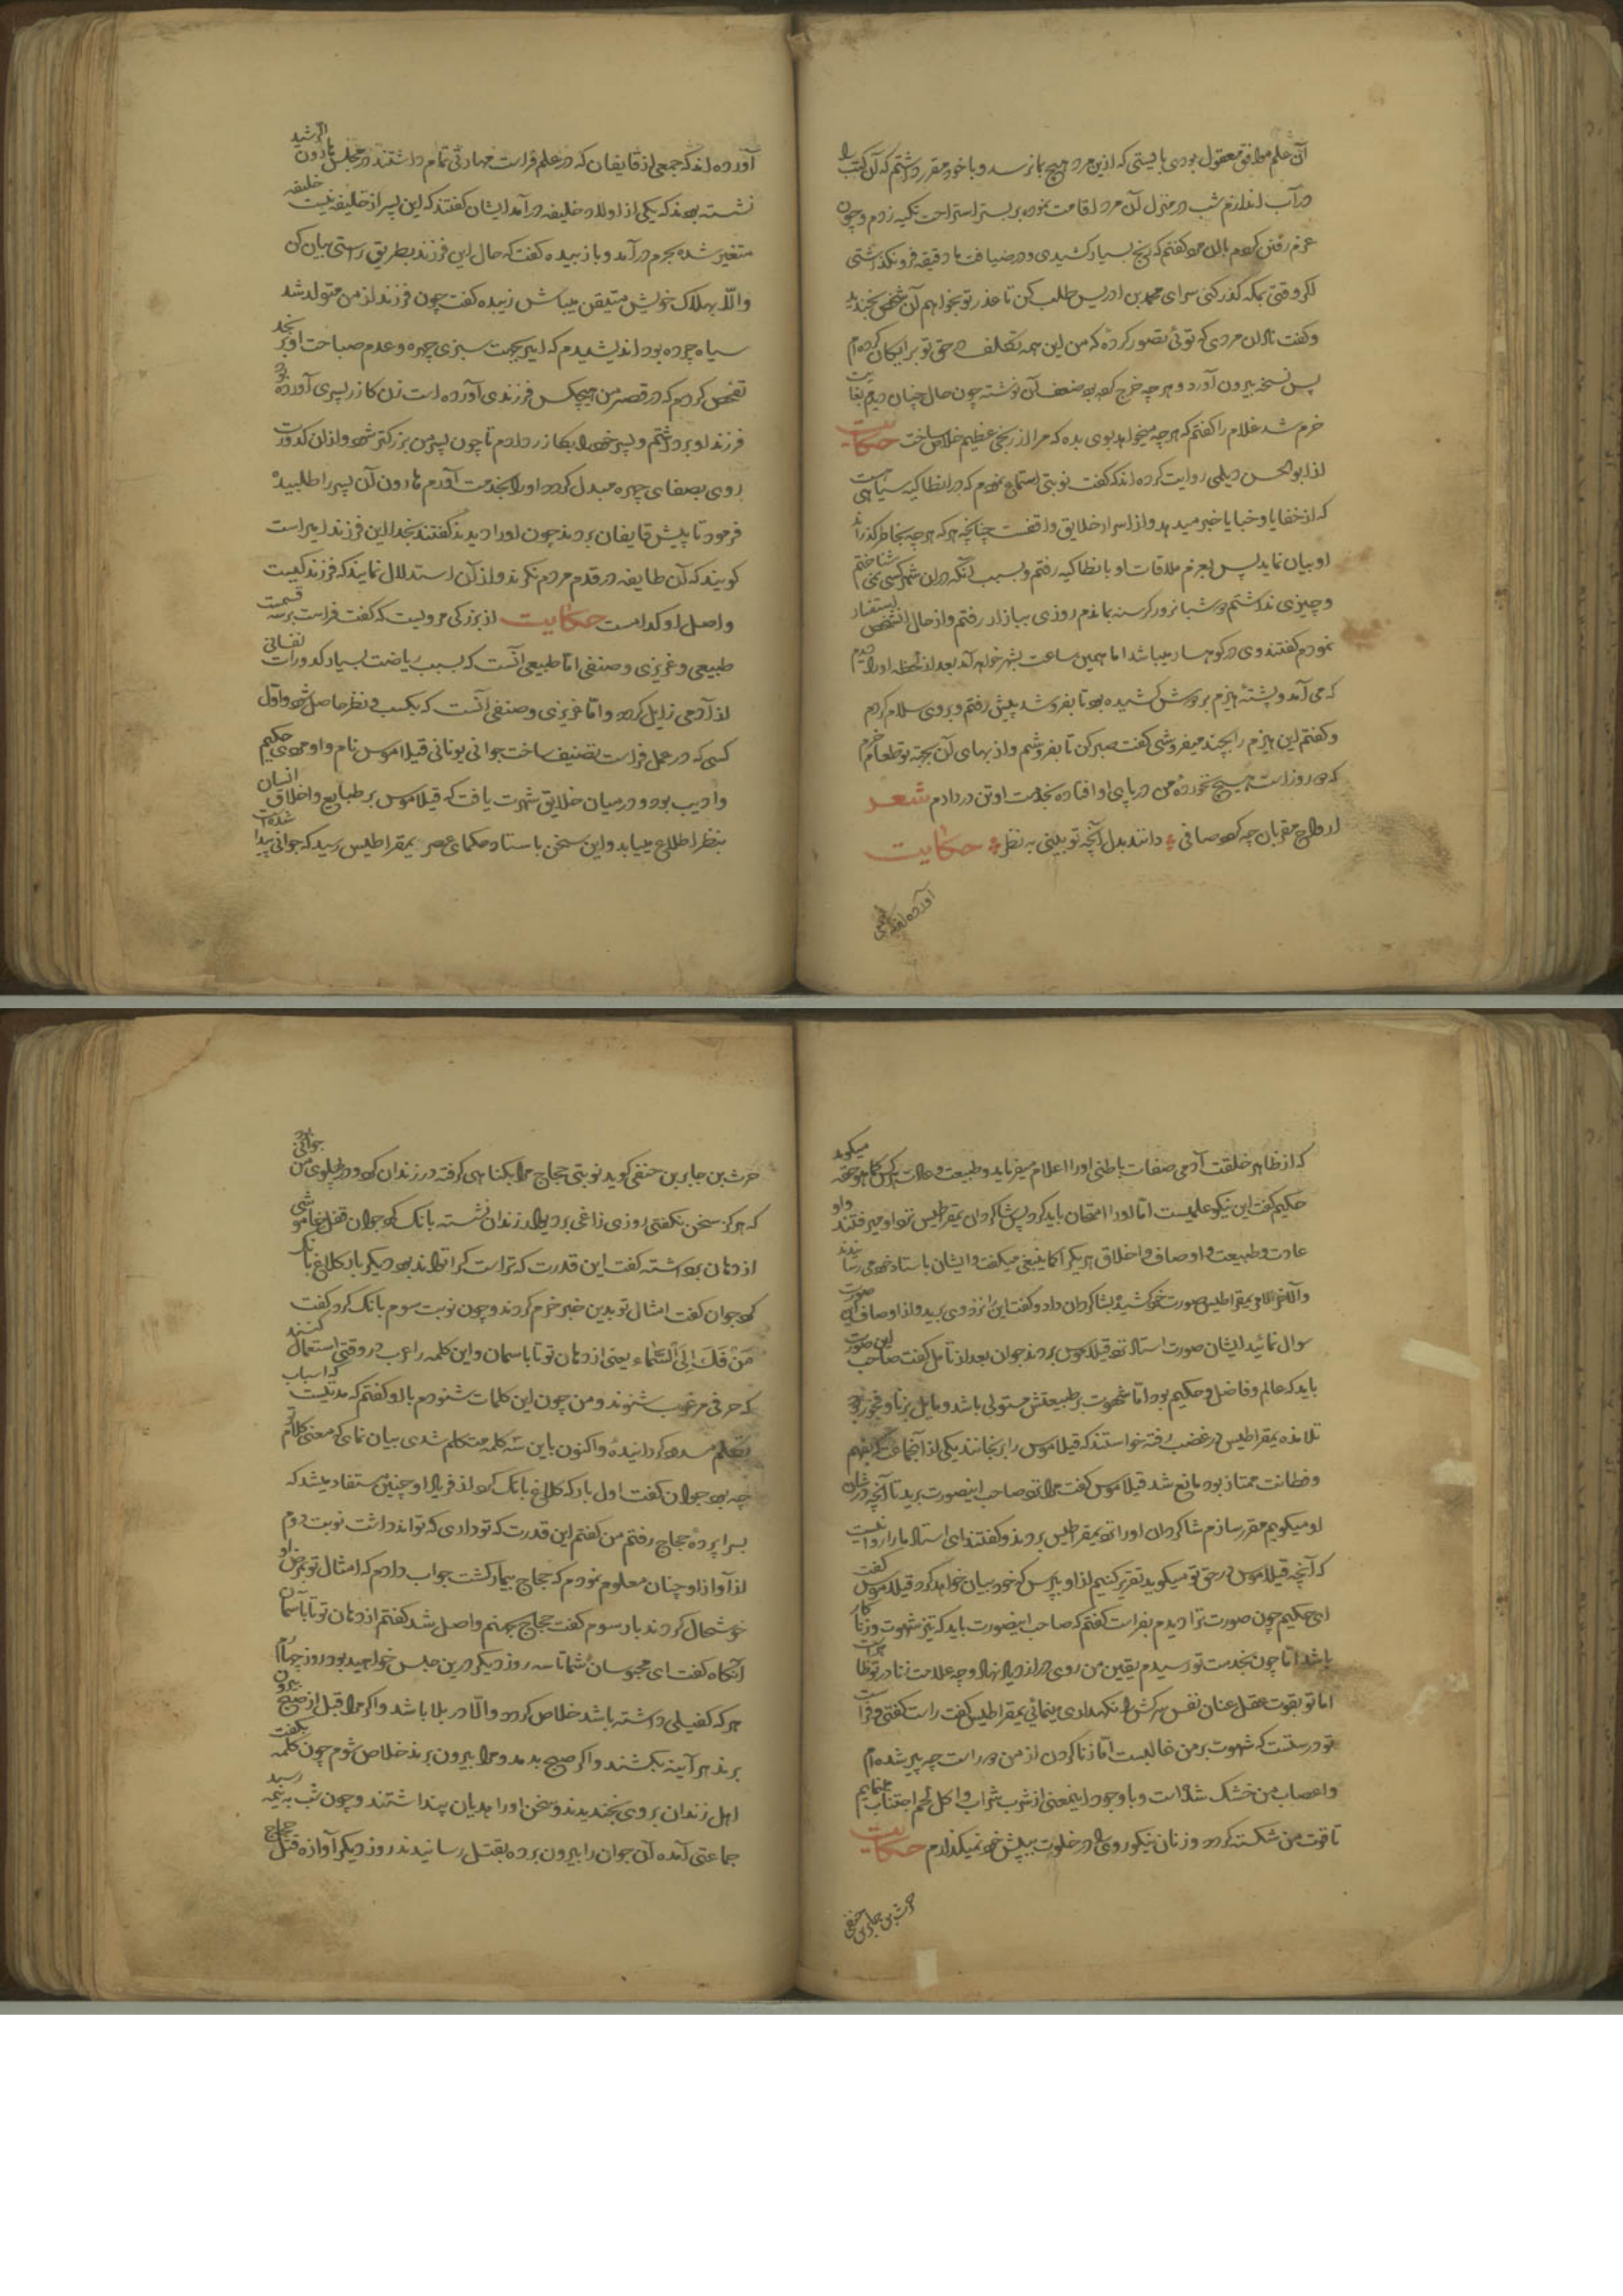 آن علم موافق معقول بودی بایستی که ازین مرد هیچ بما نرسد و با خود مقرر داشتم که آن کتب را
در آب اندازم شب در منزل آن مرد اقامت نموده بر بستر استراحت تکیه زدم و چون
عزم رفتن کردم با آن مرد گفتم که رنج بسیار کشیدی و در ضیافت ما دقیقه فرو نگذاشتی
اگر وقتی بمکه گذر کنی سرای محمد بن ادریس طلب کن تا عذر تو بخواهم آن شخص بخندید
و گفت نادان مردی که توئی تصور کرده که من این همه تکلف در حق تو برایگان کرده ام
پس نسخه بیرون آورد و هر چه خرج کرده بود ضعف آن نوشته چون حال چنان دیدم بغایت
خرم شد غلام را گفتم که هر چه میخواهد بوی بده که مرا از رنجی عظیم خلاص ساخت حکایت
از ابو الحسن دیلمی روایت کرده اند که گفت نوبتی استماع نمودم که در انطاکیه سیاهی است
که از خفایا و خبایا خبر میدهد و از اسرار خلایق واقفست چنانچه هر که هر چه بخاطر گذراند
او بیان نماید پس بعزم ملاقات او بانطاکیه رفتم و بسبب آنکه در آن شهر کسی نمی شناختم
و چیزی نداشتم دو شبانروز گرسنه بماندم روزی ببازار رفتم و از حال آن شخص استفسار
نمودم گفتند وی در کوهسار میباشد اما همین ساعت بشهر خواهد آمد بعد از لحظه او را دیدم
که می آمد و پشته هیزم بر دوش کشیده بود تا بفروشد پیش رفتم و بروی سلام کردم
و گفتم این هیزم را بچند میفروشی گفت صبر کن تا بفروشم و از بهای آن بجهة تو طعام خرم
که دو روز است هیچ نخورده من در پای او افتاده بخدمت او تن در دادم شعر
ارواح مقربان چه کرد صافی دانند بدل آنچه تو بینی به نظر حکایت
آورده اند که جمعی
آورده اند که جمعی از قایفان که در علم فراست مهارتی تمام داشتند در مجلس هارون الرشید
نشسته بودند که یکی از اولاد خلیفه در آمد ایشان گفتند که این پسر از خلیفه نیست خلیفه
متغیر شده بحرم در آمد و با زبیده گفت که حال این فرزند بطریق راستی بیان کن
و الا بهلاک خویش متیقن میباش زبیده گفت چون فرزند از من متولد شد
سیاه چرده بود اندیشیدم که امیر بجهت سبزی چهره و عدم صباحت او برنجد
تفحص کردم که در قصر من هیچکس فرزندی آورده است زن گازر پسری آورده بود
فرزند او برداشتم و پسر خود را بگازر دادم تا چون پسر من بزرگتر شود و از آن کدورت
روی بصفای چهره مبدل گردد او را بخدمت آورم هارون آن پسر را طلبیده
فرمود تا پیش قایفان بردند چون او را دیدند گفتند بخدا این فرزند امیر است
گویند که آن طایفه در قدم مردم نگرند و از آن استدلال نمایند که فرزند کیست
و اصل او کدامست حکایت از بزرگی مرویست که گفت فراست بر سه قسمت
طبیعی و غریزی و صنفی اما طبیعی آنست که بسبب ریاضت بسیار کدورات نفسانی
از آدمی زایل گردد و اما غریزی و صنفی آنست که بکسب و نظر حاصل شود و اول
کسی که در عمل فراست تصنیف ساخت جوانی یونانی قیلاموس نام و او مردی حکیم
و ادیب بود و در میان خلایق شهرت یافت که قیلاموس بر طبایع و اخلاق انسان
بنظر اطلاع مییابد و این سخن باستاد حکمای عصر بقراطیس رسید که جوانی پیدا شده است
که از ظاهر خلقت آدمی صفات باطنی او را اعلام میفرماید و طبیعت و عادت هر کس کما هو حقه میگوید
حکیم گفت این نیکو علمیست اما او را امتحان باید کرد پس شاگردان بقراطیس نزد او میرفتند و او
عادت و طبیعت و اوصاف و اخلاق هر یک را کما ینبغی میگفت و ایشان باستاد خود می رسانیدند
و آخر الامر بقراطیس صورت خود کشیده بشاگردان داد و گفت این را نزد وی برید و از اوصاف این صورت
سوال نمائید ایشان صورت استاد نزد قیلاموس بردند جوان بعد از تامل گفت صاحب این صورت
باید که عالم و فاضل و حکیم بود اما شهوت بر طبیعتش مستولی باشد و مایل بزنا و فجور بود
تلامذه بقراطیس در غضب رفته خواستند که قیلاموس را برنجانند یکی از آنجماعت که بفهم
و فطانت ممتاز بود مانع شد قیلاموس گفت مرا نزد صاحب اینصورت برید تا آنچه در شان
او میگویم مقرر سازم شاگردان او را نزد بقراطیس بردند و گفتند ای استاد ما را روا نیست
که آنچه قیلاموس در حق تو میگوید تقریر کنیم از او بپرس که خود بیان خواهد کرد قیلاموس گفت
ای حکیم چون صورت ترا دیدم بفراست گفتم که صاحب اینصورت باید که تیز شهوت و زناکار
باشد اما چون بخدمت تو رسیدم یقین من روی در ازدیاد نهاد و چه علامت زنا در تو ظاهر است
اما تو بقوت عقل عنان نفس سرکش را نگهداری مینمائی بقراطیس گفت راست گفتی و فراست
تو درستست که شهوت بر من غالبست اما زنا کردن از من دور است چه پیر شده ام
و اعصاب من خشک شده است و با وجود اینمعنی از شرب شراب و اکل لحم اجتناب مینمایم
تا قوت من شکسته گردد و زنان نیکو روی را در خلوت به پیش خود نمیگذارم حکایت
حرث بن جابر بن حنفی
حرث بن جابر بن حنفی گوید نوبتی حجاج مرا بگناهی گرفته در زندان کرد و در پهلوی من جوانی بود
که هرگز سخن نگفتی روزی زاغی بر دیوار زندان نشسته بانگ کرد جوان قفل خاموشی
از دهان برداشته گفت این قدرت که تراست کرا تواند بود دیگر بار کلاغ بانگ
کرد جوان گفت امثال تو بدین خبر خرم گردند و چون نوبت سوم بانگ کرد گفت
مَنْ فَكَ اِلَى السَّمَاءِ یعنی از دهان تو تا باسمان و این کلمه را عرب در وقتی استعمال کنند
که حرفی مرغوب شنوند و من چون این کلمات شنودم با او گفتم که مدتیست که اسباب
تکلم مسدود گردانیده و اکنون باین سه کلمه متکلم شدی بیان نمای که معنی کلام تو
چه بود جوان گفت اول بار که کلاغ بانگ کرد از فریاد او چنین مستفاد میشد که
بسراپرده حجاج رفتم من گفتم این قدرت که تو داری که تواند داشت نوبت دوم
از آواز او چنان معلوم نمودم که حجاج بیمار گشت جواب دادم که امثال تو بمرض او
خوشحال گردند بار سوم گفت حجاج بجهنم واصل شد گفتم از دهان تو تا باسمان
آنگاه گفت ای محبوسان شما تا سه روز دیگر درین حبس خواهید بود روز چهارم
هر که کفیلی داشته باشد خلاص گردد و الا در بلا باشد و اگر مرا قبل از صبح بیرون
برند هر آینه بکشند و اگر صبح بدمد و مرا بیرون برند خلاص شوم چون کلمه بگفت
اهل زندان بروی بخندیدند و سخن او را هذیان پنداشتند و چون شب به نیمه رسید
جماعتی آمده آن جوان را بیرون برده بقتل رسانیدند روز دیگر آوازه قتل حجاج